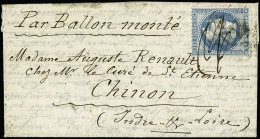 Par Ballon monté
Madame Auguste Renault
chez Mr le Curé de St Etienne
Chinon
(Indre & Loire)